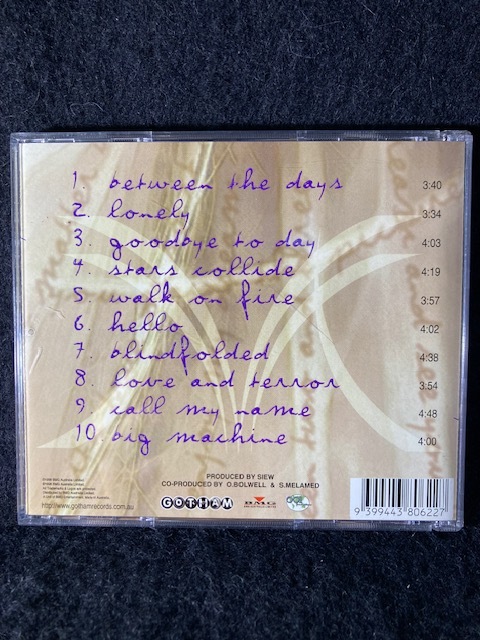 1. between the days 3:40
2. lonely 3:34
3. goodbye to day 4:03
4. stars collide 4:19
5. walk on fire 3:57
6. hello 4:02
7. blindfolded 4:38
8. love and terror 3:54
9. call my name 4:48
10. big machine 4:00
PRODUCED BY SIEW
CO-PRODUCED BY O.BOLWELL & S.MELAMED
http://www.gothamrecords.com.au
GOTHAM
BMG
9 399443 806227